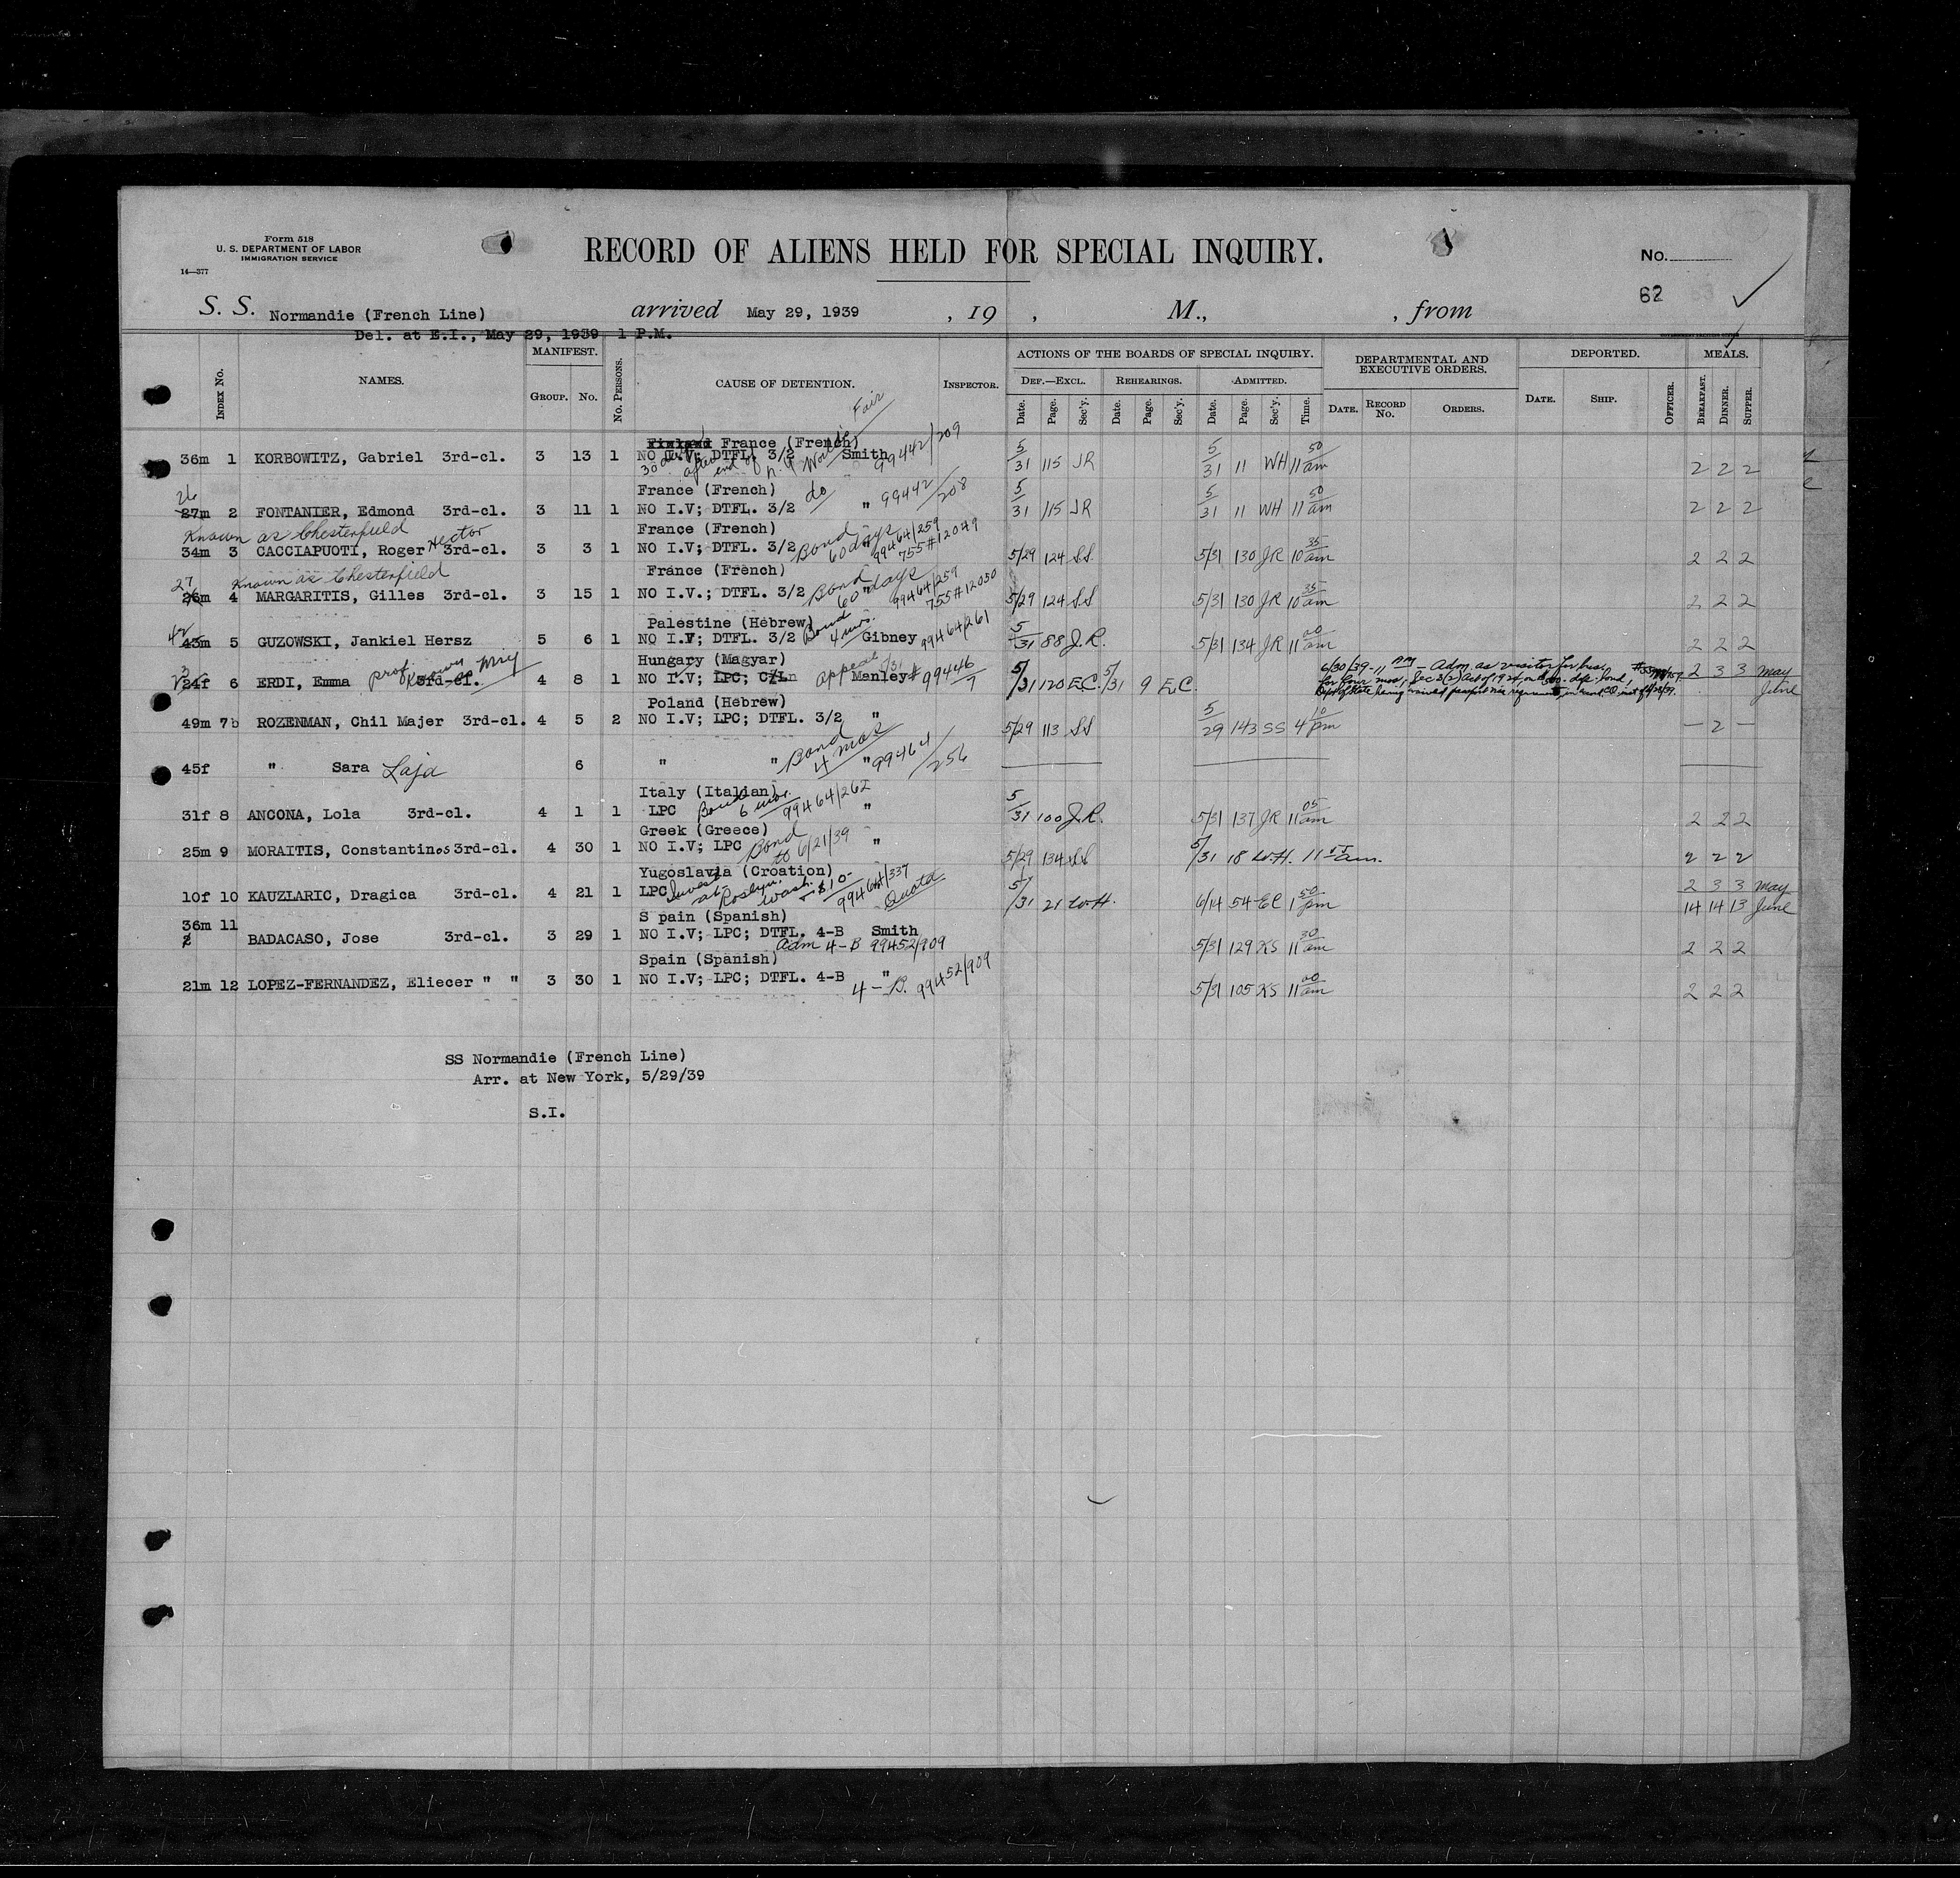 Form 518
U. S. DEPARTMENT OF LABOR
IMMIGRATION SERVICE
14—377
RECORD OF ALIENS HELD FOR SPECIAL INQUIRY.
No.
62
S. S. Normandie (French Line) arrived May 29, 1939 , 19 , M., , from
Del. at E.I., May 29, 1939 1 P.M.
INDEX No. NAMES. MANIFEST. GROUP. No. No. PERSONS. CAUSE OF DETENTION. INSPECTOR. ACTIONS OF THE BOARDS OF SPECIAL INQUIRY. DEF.—EXCL. Date. Page. Sec'y. REHEARINGS. Date. Page. Sec'y. ADMITTED. Date. Page. Sec'y. Time. DEPARTMENTAL AND EXECUTIVE ORDERS. DATE. RECORD No. ORDERS. DEPORTED. DATE. SHIP. OFFICER. MEALS. BREAKFAST. DINNER. SUPPER.
Finland France (French)
36m 1 KORBOWITZ, Gabriel 3rd-cl. 3 13 1 NO I.V; DTFL 3/2 Smith 99442/209 5/31 115 JR 5/31 11 WH 11 50 am 2 2 2
30 days after end of N.Y. World's Fair
France (French)
26
27m 2 FONTANIER, Edmond 3rd-cl. 3 11 1 NO I.V; DTFL. 3/2 do " 99442/208 5/31 115 JR 5/31 11 WH 11 50 am 2 2 2
Known as Chesterfield
France (French)
34m 3 CACCIAPUOTI, Roger Hector 3rd-cl. 3 3 1 NO I.V; DTFL. 3/2 Bond 60 days 99464/259 755#12049 5/29 124 SS 5/31 130 JR 10 35 am 2 2 2
Known as Chesterfield
France (French)
27
26m 4 MARGARITIS, Gilles 3rd-cl. 3 15 1 NO I.V.; DTFL. 3/2 Bond 60 days 99464/259 755#12050 5/29 124 SS 5/31 130 JR 10 35 am 2 2 2
Palestine (Hebrew)
42
43m 5 GUZOWSKI, Jankiel Hersz 5 6 1 NO I.V; DTFL. 3/2 Bond 4 mos. Gibney 99464/261 5/31 88 J.R. 5/31 134 JR 11 00 am 2 2 2
Hungary (Magyar)
24f 6 ERDI, Emma prof. known as May 3rd-cl. 4 8 1 NO I.V; LPC; appeal 5/31 Manley# 99446/7 5/31 120 E.C. 5/31 9 E.C. 2 3 3 May
6/30/39 - Adm. as visitor for bus.
for four mos; Sec 3(2) Act of 1924 on
June
Poland (Hebrew)
49m 7b ROZENMAN, Chil Majer 3rd-cl. 4 5 2 NO I.V; LPC; DTFL. 3/2 " 5/29 113 SS 5/29 143 SS 4 10 pm — 2 —
45f " Sara Laja 6 " " Bond 4 mos " 99464/256
Italy (Italian)
31f 8 ANCONA, Lola 3rd-cl. 4 1 1 LPC Bond 6 mos. 99464/262 " 5/31 100 J.R. 5/31 137 JR 11 05 am 2 2 2
Greek (Greece)
25m 9 MORAITIS, Constantinos 3rd-cl. 4 30 1 NO I.V; LPC Bond to 6/21/39 " 5/29 134 SS 5/31 18 W.H. 11 am. 2 2 2
Yugoslavia (Croation)
10f 10 KAUZLARIC, Dragica 3rd-cl. 4 21 1 LPC Invest. at Roslyn, Wash. $10- 99464/337 Quota 5/31 21 W.H. 6/14 54 EC 1 50 pm 2 3 3 May
14 14 13 June
S pain (Spanish)
36m 11 BADACASO, Jose 3rd-cl. 3 29 1 NO I.V; LPC; DTFL. 4-B Smith 5/31 129 KS 11 30 am 2 2 2
Adm 4-B 99452/909
Spain (Spanish)
21m 12 LOPEZ-FERNANDEZ, Eliecer " " 3 30 1 NO I.V; LPC; DTFL. 4-B " 4-B. 99452/909 5/31 105 KS 11 00 am 2 2 2
SS Normandie (French Line)
Arr. at New York, 5/29/39
S.I.